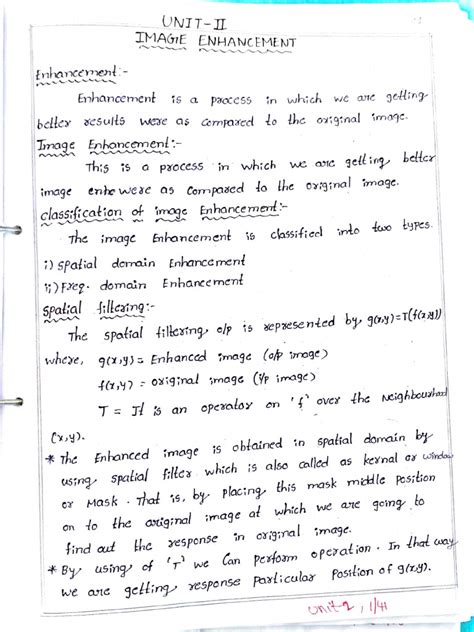 UNIT-II
IMAGE ENHANCEMENT
Enhancement:-
Enhancement is a process in which we are getting
better results were as compared to the original image.
Image Enhancement:-
This is a process in which we are getting better
image enhe were as compared to the original image.
classification of image Enhancement:-
The image Enhancement is classified into two types.
i) spatial domain Enhancement
ii) Freq. domain Enhancement
spatial filtering:-
The spatial filtering o/p is represented by, g(x,y)=T(f(x,y))
where, g(x,y) = Enhanced image (o/p image)
f(x,y) = original image (i/p image)
T = It is an operator on 'f' over the Neighbourhood
(x,y).
* The Enhanced image is obtained in spatial domain by
using spatial filter which is also called as kernal or window
or Mask. That is, by placing this mask middle position
on to the original image at which we are going to
find out the response in original image.
* By using of 'T' we can perform operation. In that way
we are getting response particular position of g(x,y).
Unit-2, 1/41